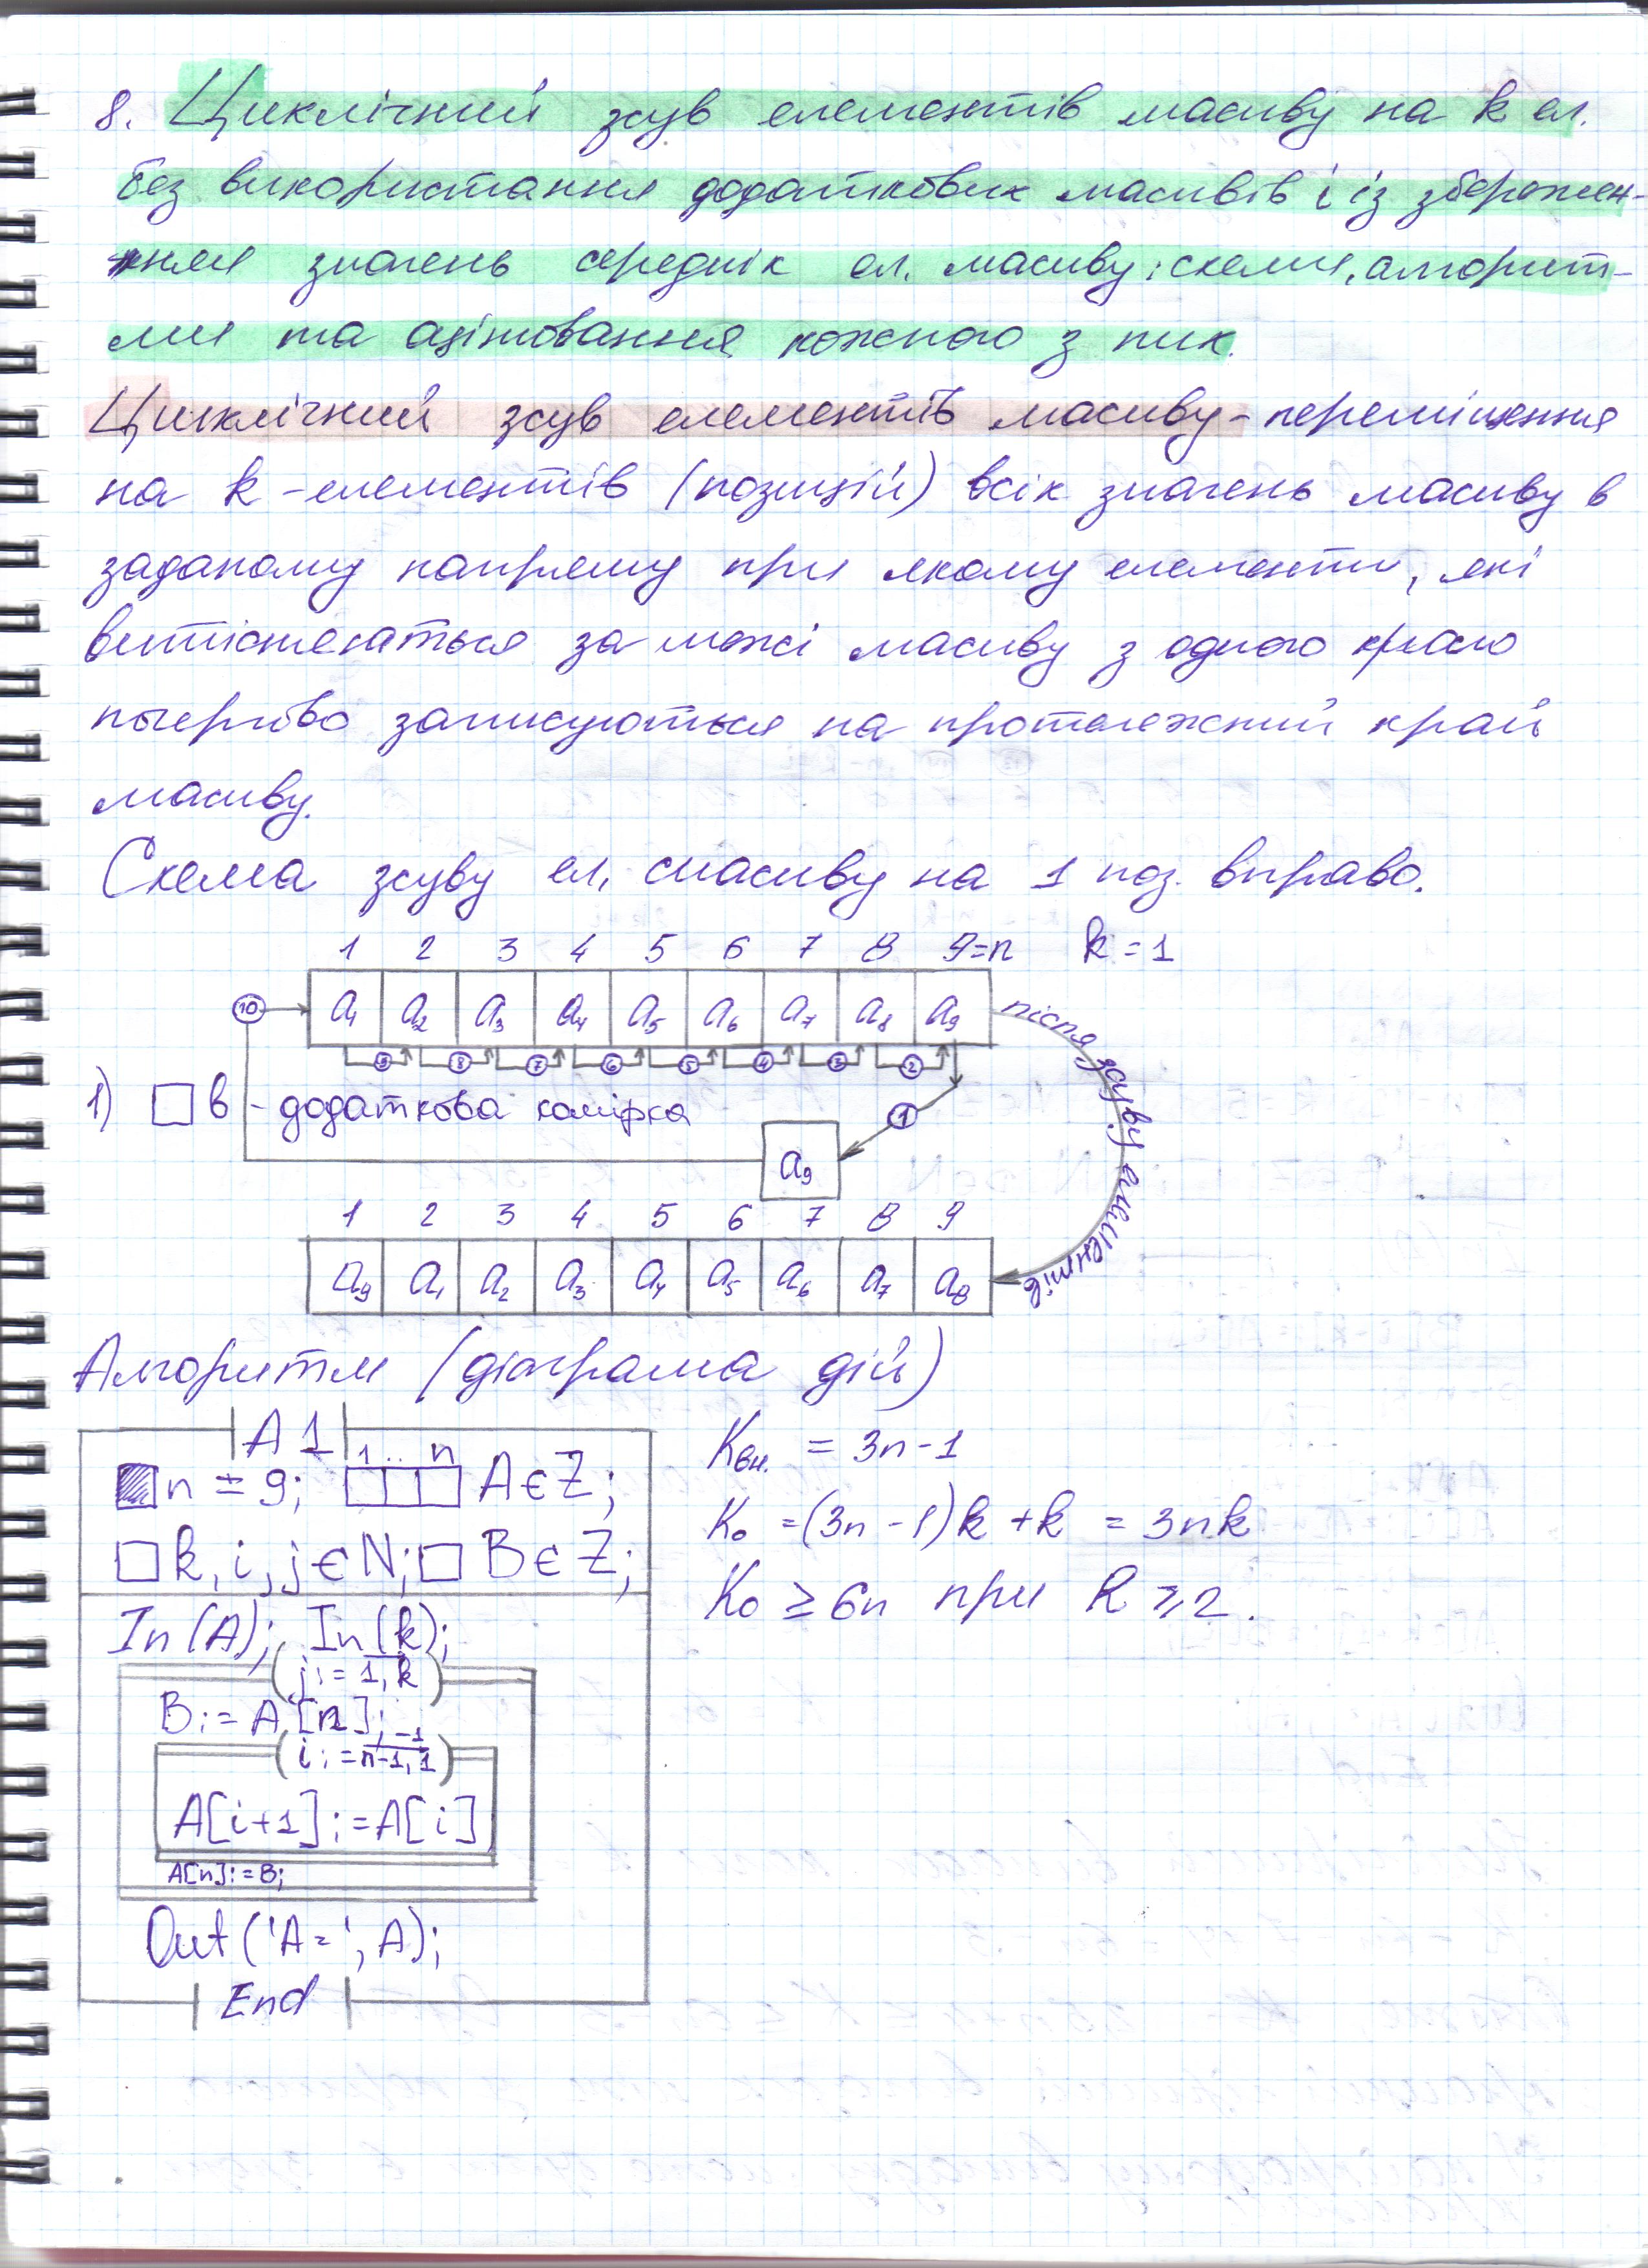 8. Циклічний зсув елементів масиву на k ел.
без використання додаткових масивів і із збережен-
ням значень середніх ел. масиву: схеми, алгорит-
ми та оцінювання кожного з них.
Циклічний зсув елементів масиву - переміщення
на k-елементів (позицій) всіх значень масиву в
заданому напряму при якому елементи, які
витісняються за межі масиву з одного краю
почергово записуються на протилежний край
масиву.
Схема зсуву ел. масиву на 1 поз. вправо.
1 2 3 4 5 6 7 8 9=n k=1
10 a₁ a₂ a₃ a₄ a₅ a₆ a₇ a₈ a₉
9 8 7 6 5 4 3 2
після зсуву елементів
1) В - додаткова комірка
1
a₉
1 2 3 4 5 6 7 8 9
a₉ a₁ a₂ a₃ a₄ a₅ a₆ a₇ a₈
Алгоритм (діаграма дій)
A1
1.. n
n = 9; A∈Z;
k, i, j∈N; B∈Z;
In(A); In(k);
j:=1,k
B:=A[n];
-1
i:=n-1,1
A[i+1]:=A[i]
A[n]:=B;
Out('A=', A);
End
Kвн. = 3n-1
K₀ =(3n-1)k+k = 3nk
K₀ ≥ 6n при k ≥ 2.